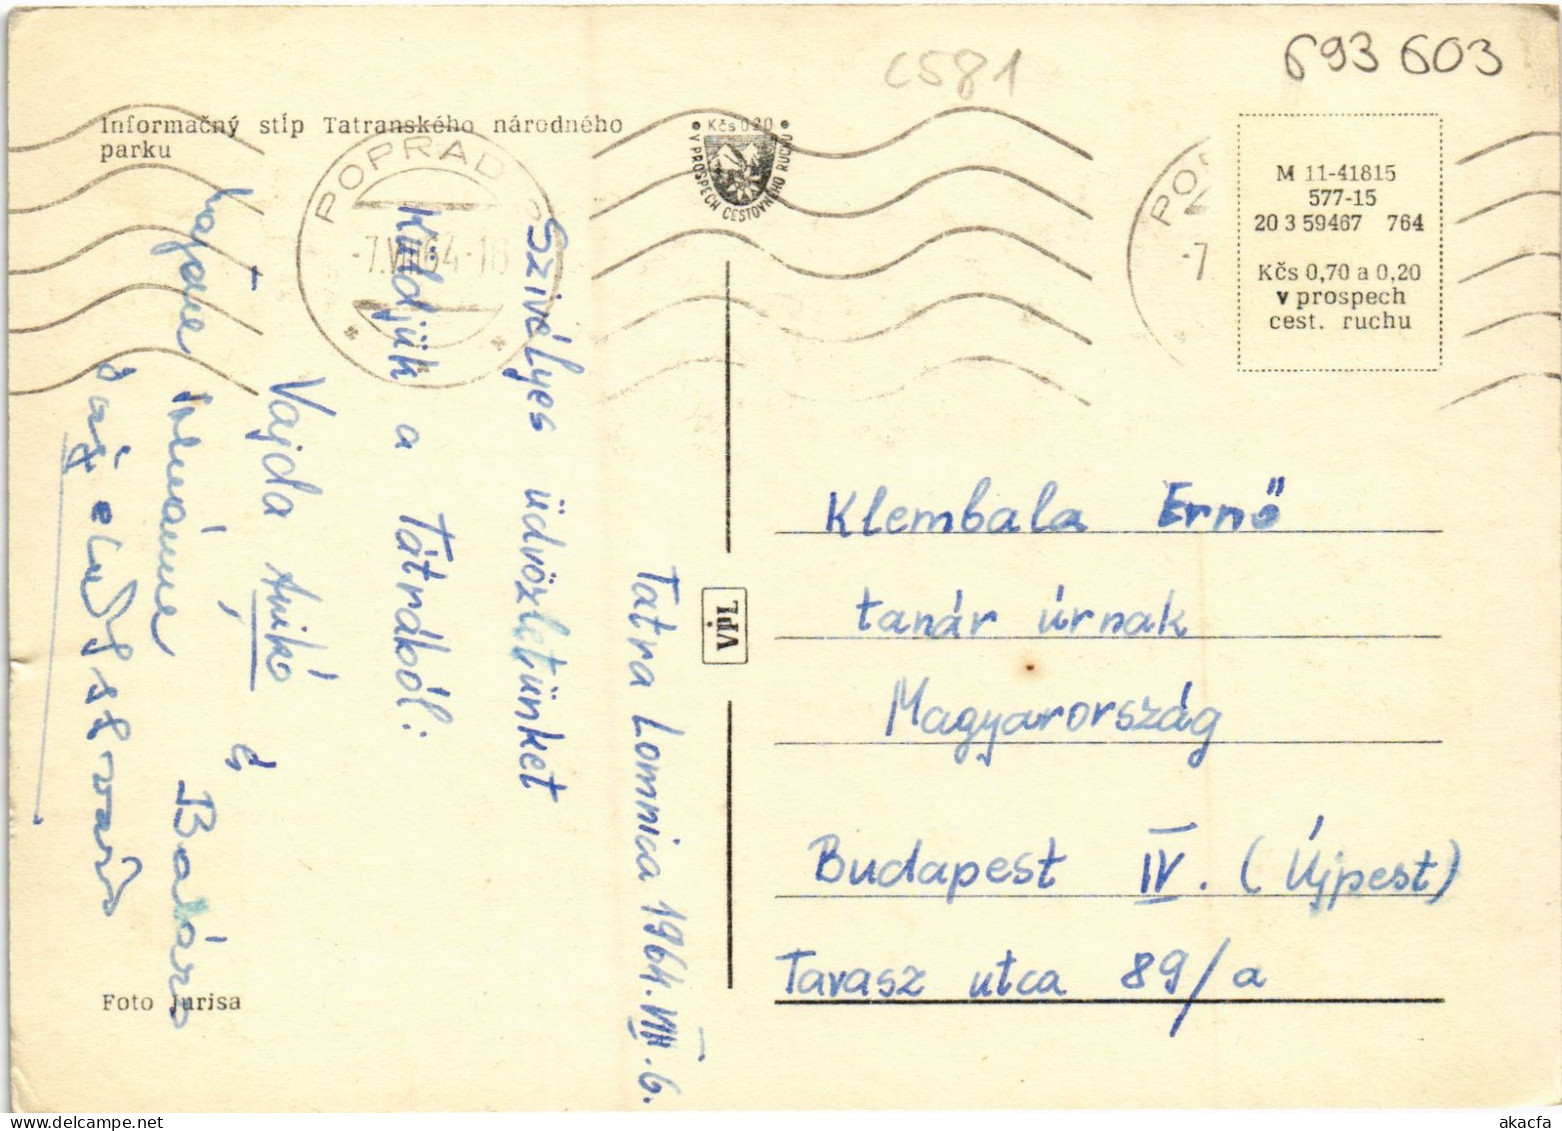 693 603
C581
Informačný stĺp Tatranského národného
parku
POPRAD
-7.VIII.64-16
• Kčs 0,20 •
V PROSPECH CESTOVNÉHO RUCHU
M 11-41815
577-15
20 3 59467 764
Kčs 0,70 a 0,20
v prospech
cest. ruchu
Tatra Lomnica 1964.VIII.6.
Szivélyes üdvözletünket
Küldjük a Tátrából:
Vajda Anikó
és
VPL
Klembala Ernő
tanár úrnak
Magyarország
Budapest IV. (Újpest)
Tavasz utca 89/a
Foto Jurisa
akacfa